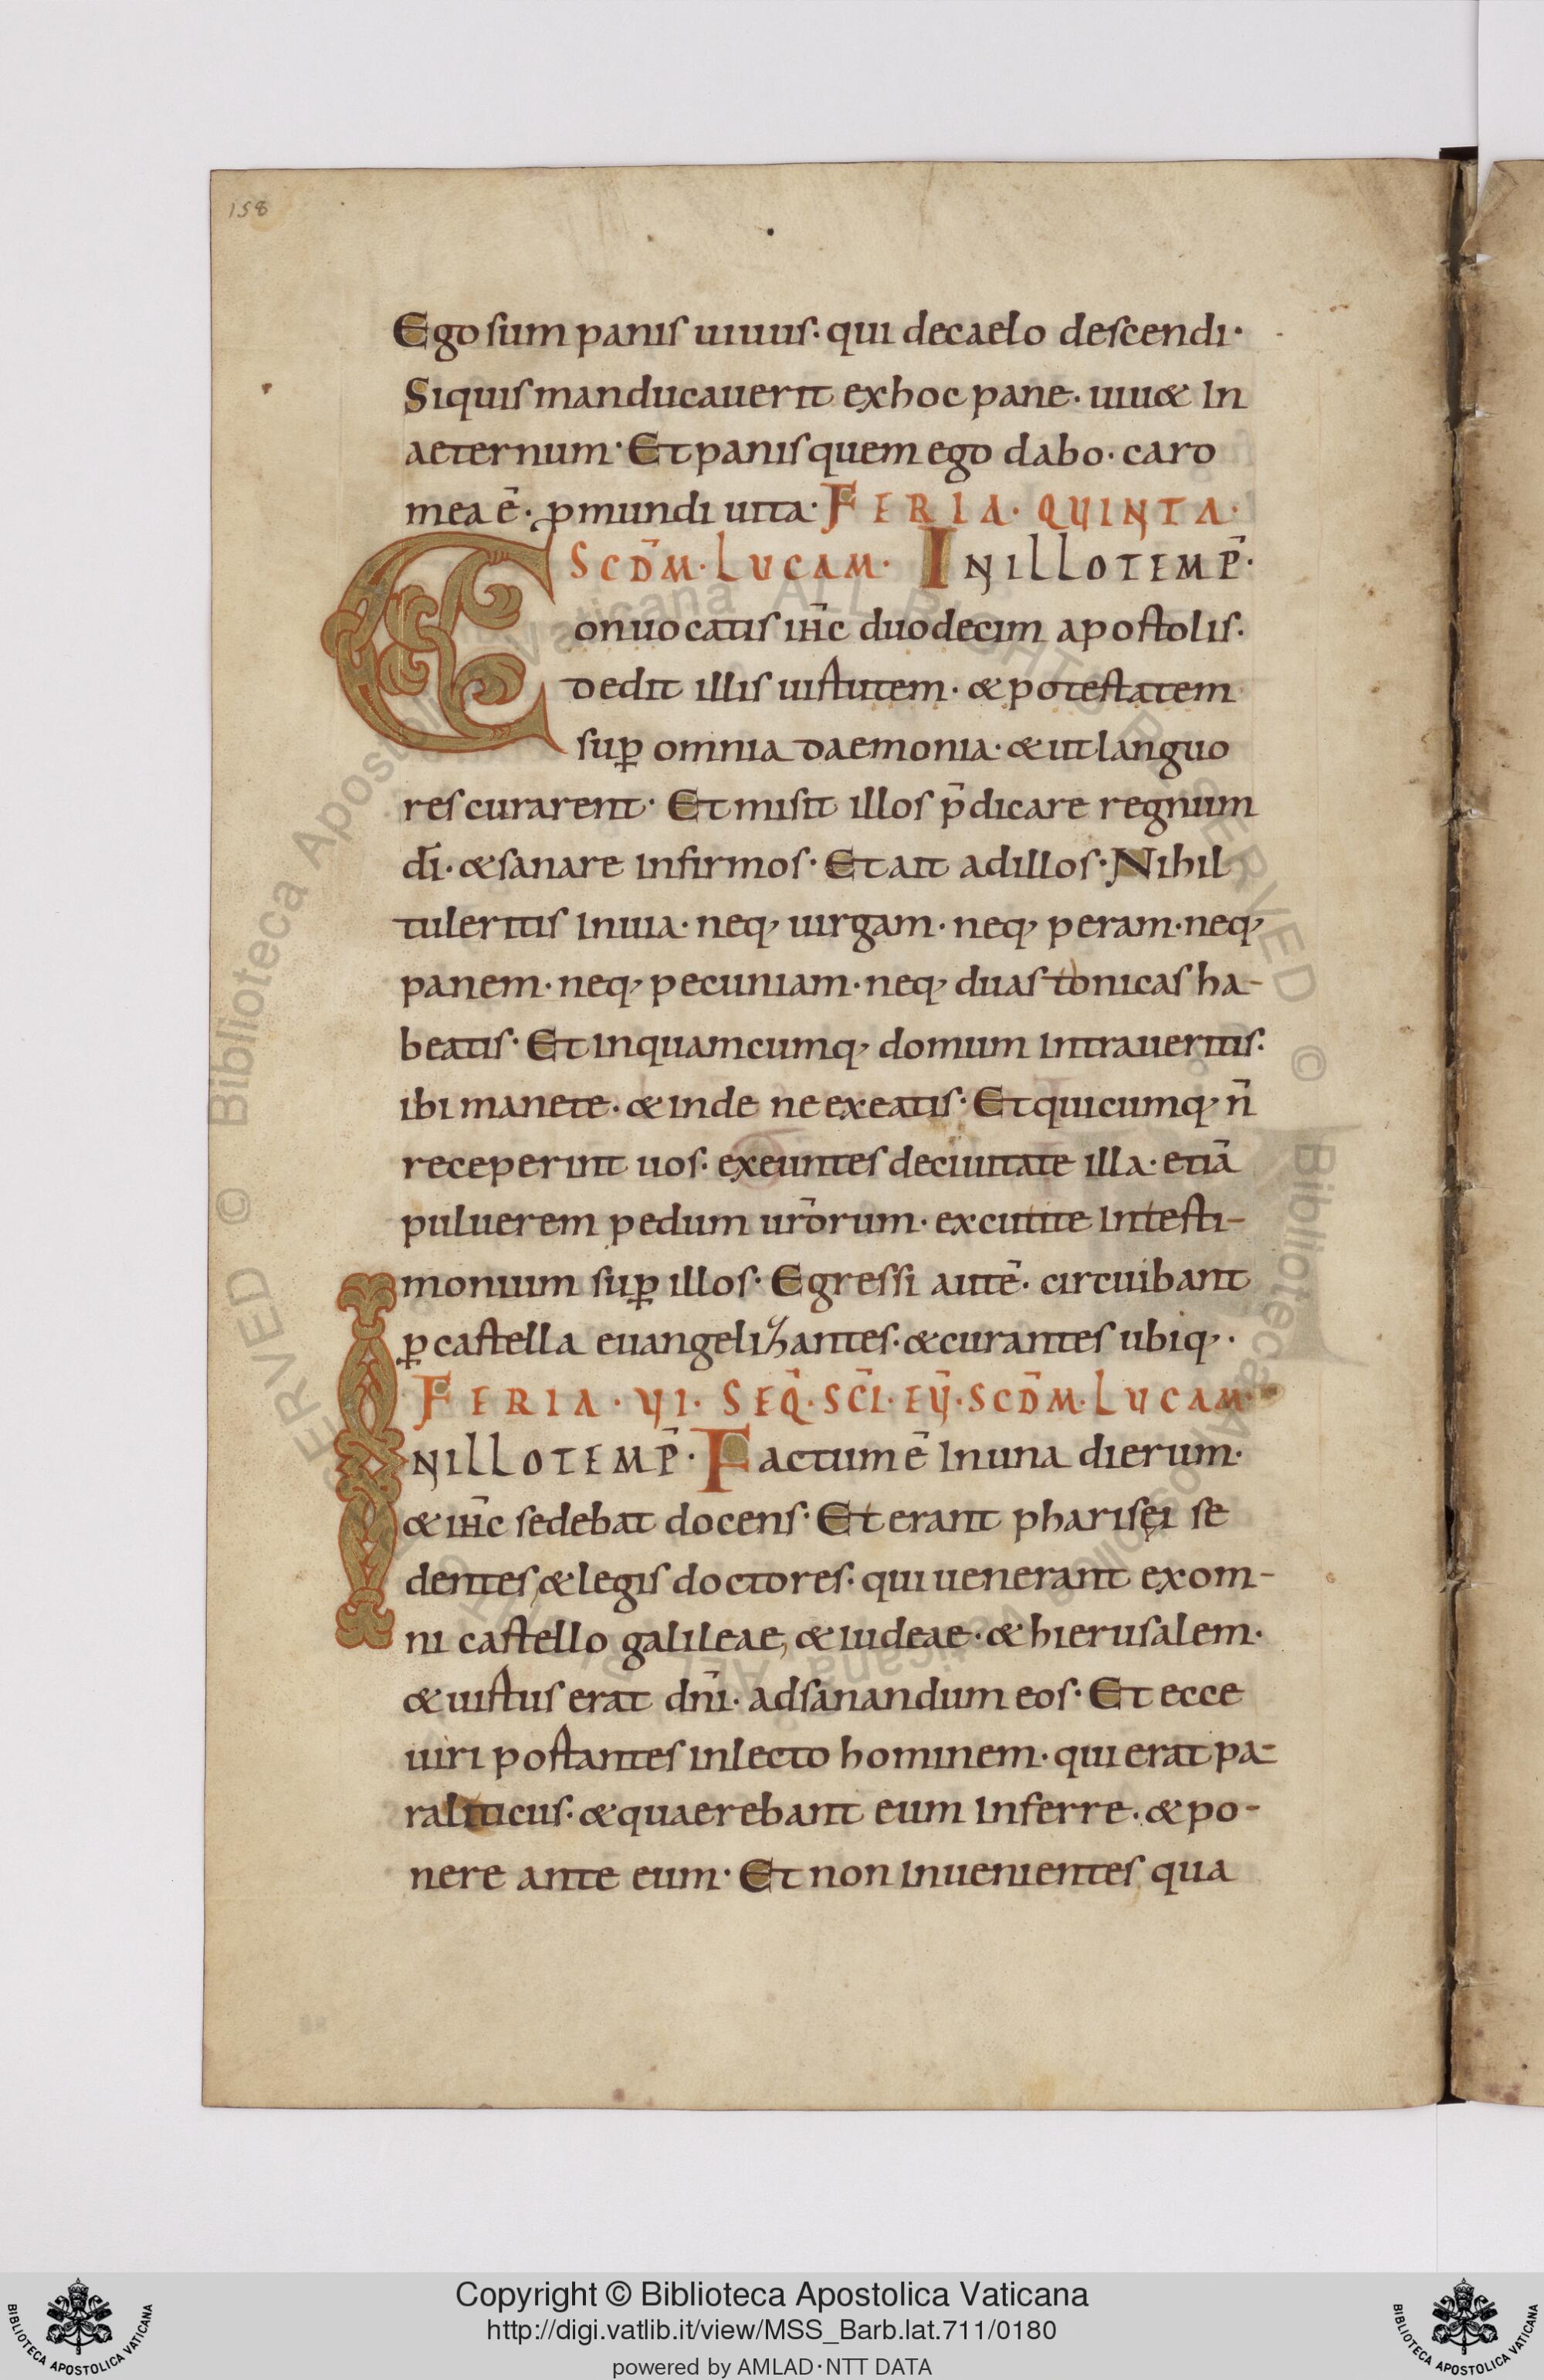 158
Ego sum panis uiuus· qui decaelo descendi·
Siquis manducauerit exhoc pane· uiu& In
aeternum· Et panis quem ego dabo· caro
mea ē· ꝓmundi uita· FERIA· QUINTA·
SCD̄M· LUCAM· IN ILLO TEMP̄·
Conuocatis ih̄c duodecim apostolis·
dedit illis uirtutem· & potestatem
suꝑ omnia daemonia· & ut languo
res curarent· Et misit illos p̄dicare regnum
dī· & sanare Infirmos· Et ait adillos· Nihil
tuleritis Inuia· neq, uirgam· neq, peram· neq,
panem· neq, pecuniam· neq, duas tonicas ha-
beatis· Et Inquamcumq, domum Intraueritis:
ibi manete· & inde ne exeatis· Et quicumq, n̄
receperint uos· exeuntes deciuitate illa· etiā
puluerem pedum ur̄orum· excutite Intesti-
monium suꝑ illos· Egressi autē· circuibant
ꝑ castella euangelizantes· & curantes ubiq,·
FERIA· VI· SEQ̄· SC̄I· EV̄· SCD̄M· LUCAM·
IN ILLO TEMP̄· Factum ē In una dierum·
& ih̄c sedebat docens· Et erant pharisęi se
dentes, & legis doctores· qui uenerant exom-
ni castello galileae, & iudeae· & hierusalem·
& uirtus erat dn̄i· adsanandum eos· Et ecce
uiri portantes inlecto hominem· qui erat pa-
raliticus· & quaerebant eum Inferre· & po-
nere ante eum· Et non Inuenientes qua
Copyright © Biblioteca Apostolica Vaticana
http://digi.vatlib.it/view/MSS_Barb.lat.711/0180
powered by AMLAD·NTT DATA
BIBLIOTECA APOSTOLICA VATICANA
BIBLIOTECA APOSTOLICA VATICANA